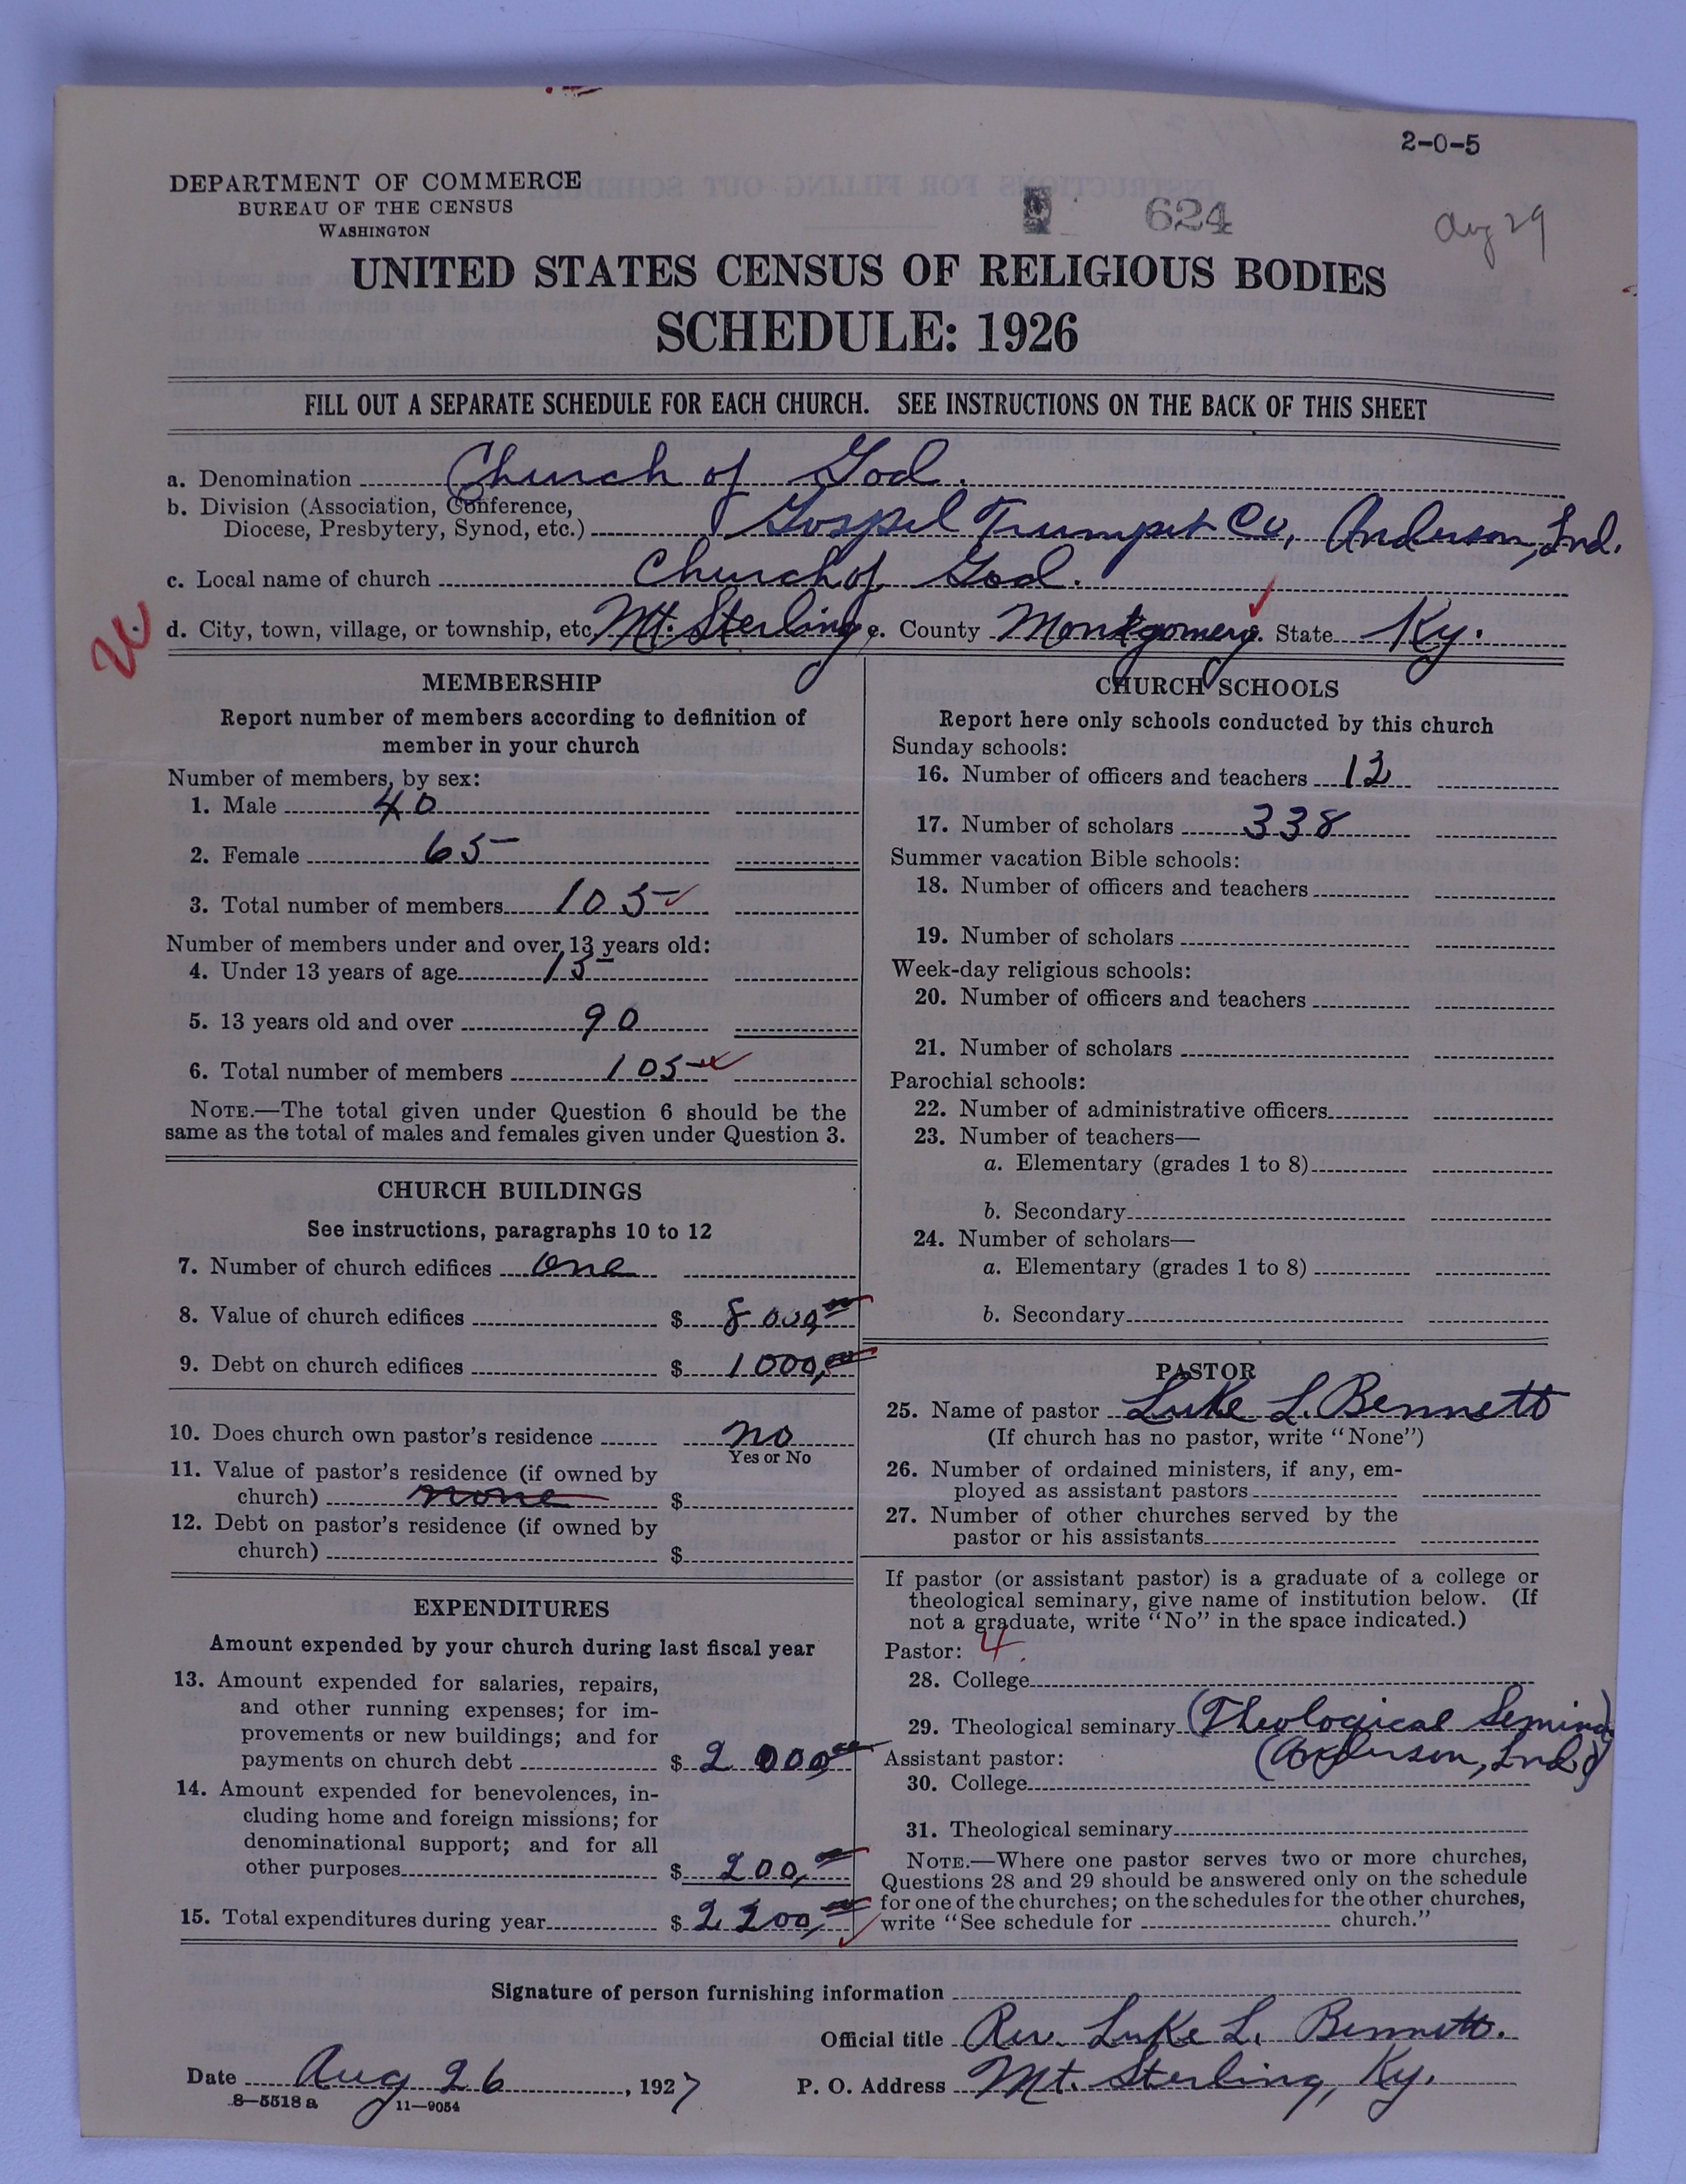 2-0-5
DEPARTMENT OF COMMERCE
BUREAU OF THE CENSUS
WASHINGTON
624
Aug 29
UNITED STATES CENSUS OF RELIGIOUS BODIES
SCHEDULE: 1926
FILL OUT A SEPARATE SCHEDULE FOR EACH CHURCH. SEE INSTRUCTIONS ON THE BACK OF THIS SHEET
a. Denomination Church of God.
b. Division (Association, Conference,
Diocese, Presbytery, Synod, etc.) Gospel Trumpet Co, Anderson, Ind.
c. Local name of church Church of God.
d. City, town, village, or township, etc. Mt. Sterling e. County Montgomery f. State Ky.
MEMBERSHIP
Report number of members according to definition of
member in your church
Number of members, by sex:
1. Male 40
2. Female 65
3. Total number of members 105
Number of members under and over 13 years old:
4. Under 13 years of age 15
5. 13 years old and over 90
6. Total number of members 105
NOTE.—The total given under Question 6 should be the
same as the total of males and females given under Question 3.
CHURCH BUILDINGS
See instructions, paragraphs 10 to 12
7. Number of church edifices one
8. Value of church edifices $ 8000,00
9. Debt on church edifices $ 1000,00
10. Does church own pastor's residence no
Yes or No
11. Value of pastor's residence (if owned by
church) none $
12. Debt on pastor's residence (if owned by
church) $
EXPENDITURES
Amount expended by your church during last fiscal year
13. Amount expended for salaries, repairs,
and other running expenses; for im-
provements or new buildings; and for
payments on church debt $ 2000,00
14. Amount expended for benevolences, in-
cluding home and foreign missions; for
denominational support; and for all
other purposes $ 200,00
15. Total expenditures during year $ 2200,00
CHURCH SCHOOLS
Report here only schools conducted by this church
Sunday schools:
16. Number of officers and teachers 12
17. Number of scholars 338
Summer vacation Bible schools:
18. Number of officers and teachers
19. Number of scholars
Week-day religious schools:
20. Number of officers and teachers
21. Number of scholars
Parochial schools:
22. Number of administrative officers
23. Number of teachers—
a. Elementary (grades 1 to 8)
b. Secondary
24. Number of scholars—
a. Elementary (grades 1 to 8)
b. Secondary
PASTOR
25. Name of pastor Luke L. Bennett
(If church has no pastor, write "None")
26. Number of ordained ministers, if any, em-
ployed as assistant pastors
27. Number of other churches served by the
pastor or his assistants
If pastor (or assistant pastor) is a graduate of a college or
theological seminary, give name of institution below. (If
not a graduate, write "No" in the space indicated.)
Pastor: 4.
28. College
29. Theological seminary (Theological Semina
Assistant pastor: (Anderson, Ind.)
30. College
31. Theological seminary
NOTE.—Where one pastor serves two or more churches,
Questions 28 and 29 should be answered only on the schedule
for one of the churches; on the schedules for the other churches,
write "See schedule for church."
Signature of person furnishing information
Official title Rev. Luke L. Bennett.
Date Aug 26, 1927 P. O. Address Mt. Sterling, Ky.
8—5518 a 11—9054